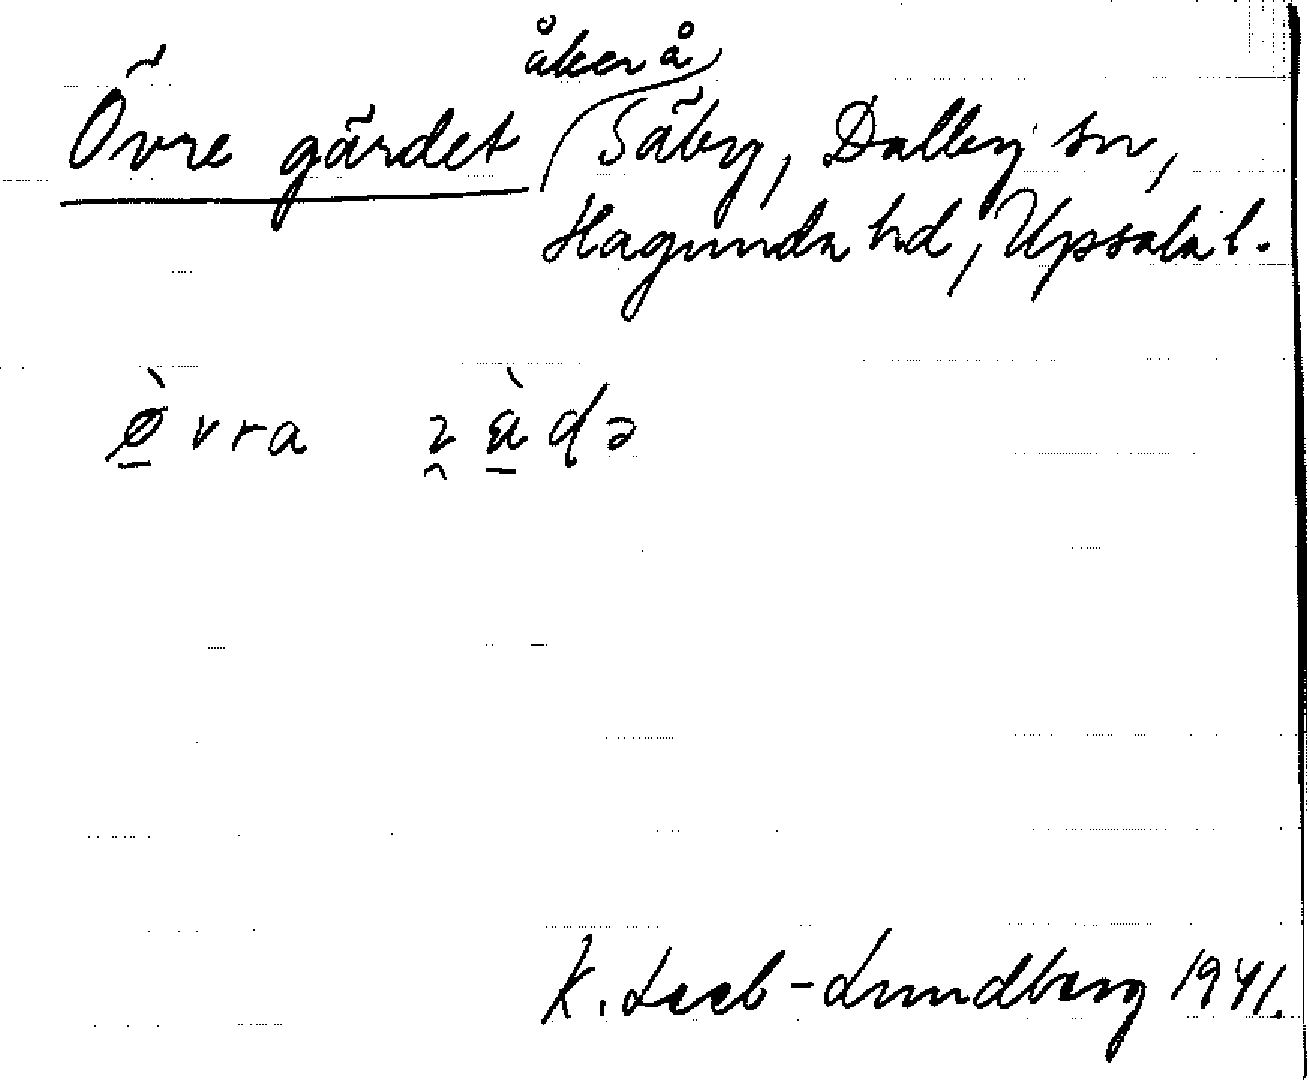 åker å
Övre gärdet Säby, Dalby sn,
Hagunda hd, Upsala l.
K. Leeb-Lundberg 1941.